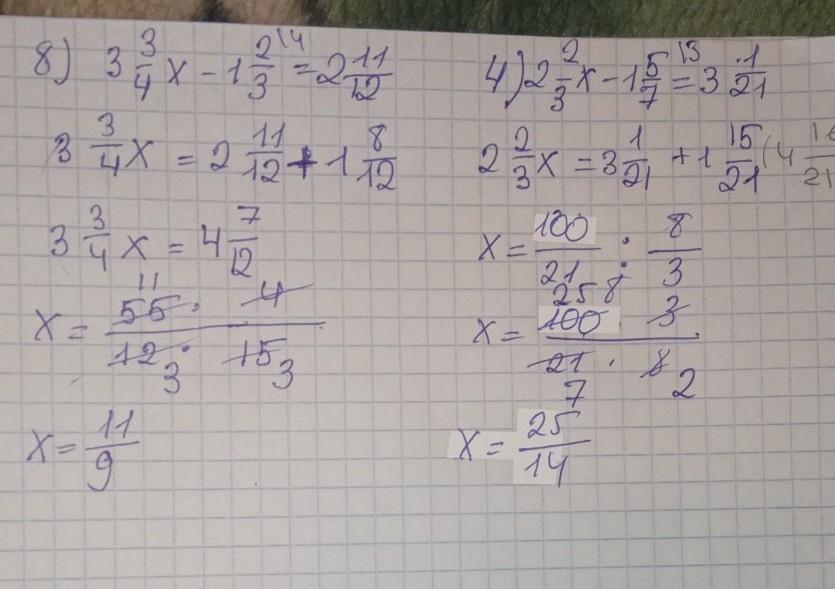 8) 3 3/4 x - 1 2/3 \4 = 2 11/12
3 3/4 x = 2 11/12 + 1 8/12
3 3/4 x = 4 7/12
11
x = 55 · 4 / 12 · 15
3 3
x = 11/9
4) 2 2/3 x - 1 5/7 \3 = 3 1/21
2 2/3 x = 3 1/21 + 1 15/21 (4 /21
x = 100/21 : 8/3
25 8
x = 100 · 3 / 21 · 8
7 2
x = 25/14